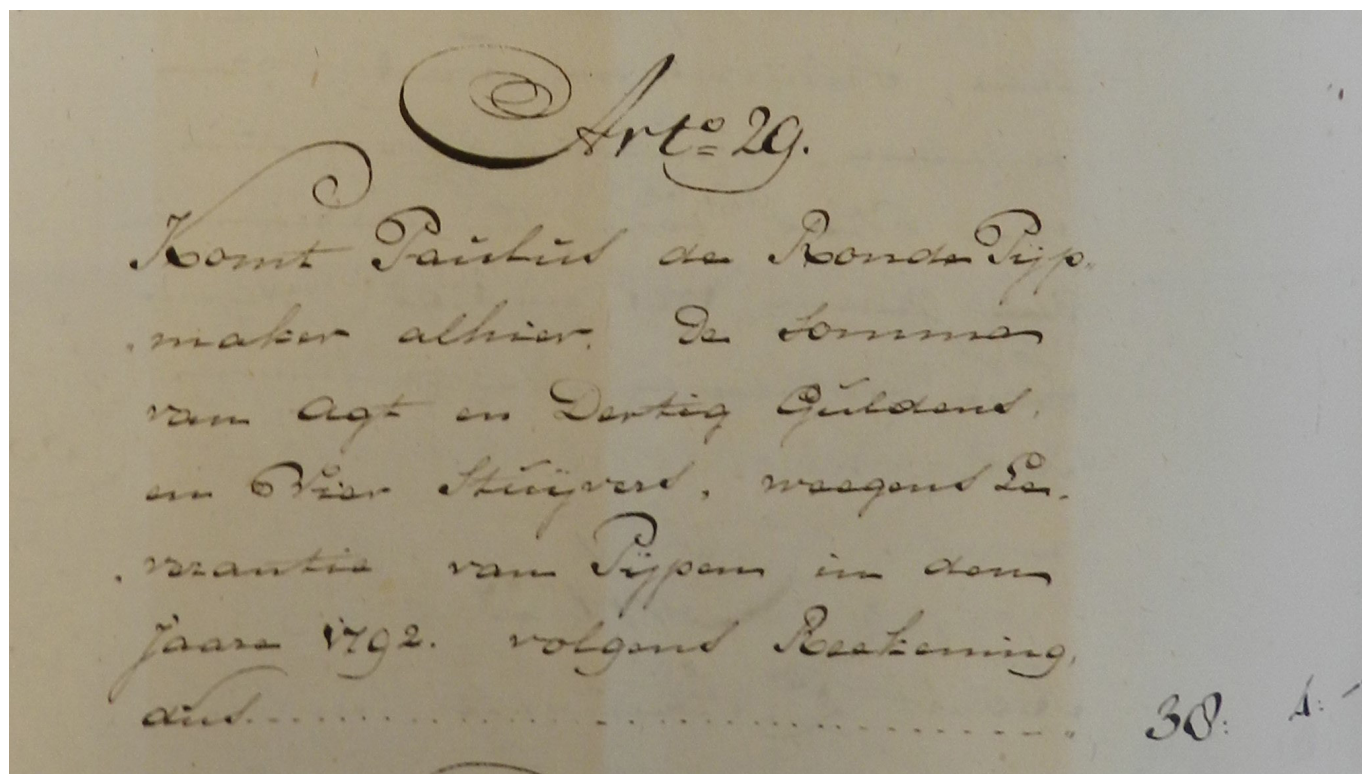 Arto. 29.
Komt Paulus de Ronde Pijp-
maker alhier. De Somma
van Agt en Dertig Guldens,
en Vier Stuijvers, weegens Le-
verantie van Pijpen in den
Jaare 1792. volgens Reekening,
dus 38: 4:-